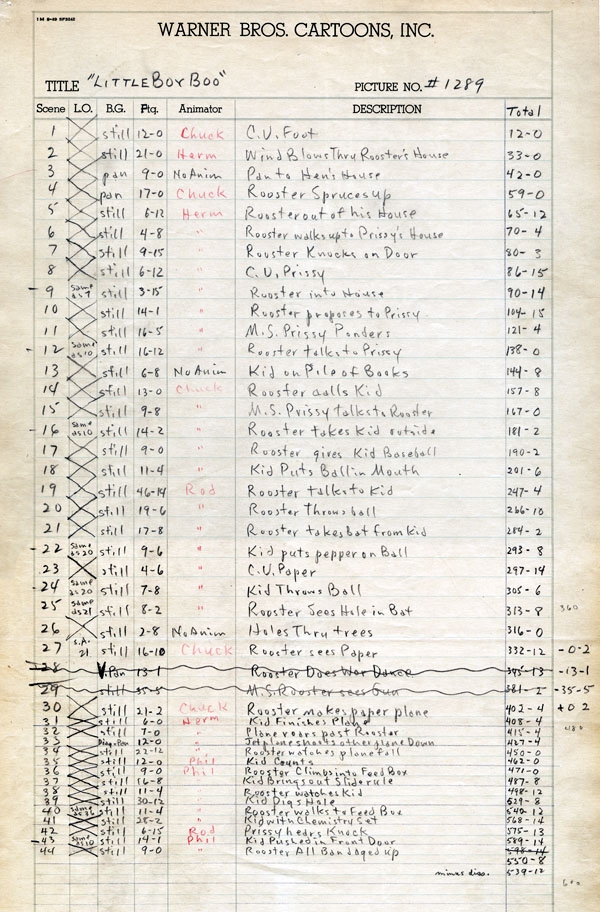 1M 8-49 NP3045
WARNER BROS. CARTOONS, INC.
TITLE "LITTLE BOY BOO" PICTURE NO. #1289
Scene L.O. B.G. Ftg. Animator DESCRIPTION Total
1 still 12-0 Chuck C.U. Foot 12-0
2 still 21-0 Herm Wind Blows Thru Rooster's House 33-0
3 pan 9-0 No Anim Pan to Hen's House 42-0
4 pan 17-0 Chuck Rooster Spruces up 59-0
5 still 6-12 Herm Rooster out of his House 65-12
6 still 4-8 " Rooster walks up to Prissy's House 70-4
7 still 9-15 " Rooster Knocks on Door 80-3
8 still 6-12 " C.U. Prissy 86-15
- 9 same as 7 still 3-15 " Rooster into House 90-14
10 still 14-1 " Rooster proposes to Prissy 104-15
11 still 16-5 " M.S. Prissy Ponders 121-4
- 12 same as 10 still 16-12 " Rooster talks to Prissy 138-0
13 still 6-8 No Anim Kid on Pile of Books 144-8
14 still 13-0 Chuck Rooster calls Kid 157-8
15 still 9-8 " M.S. Prissy talks to Rooster 167-0
- 16 same as 10 still 14-2 " Rooster takes Kid outside 181-2
17 still 9-0 " Rooster gives Kid Baseball 190-2
18 still 11-4 " Kid Puts Ball in Mouth 201-6
19 still 46-14 Rod Rooster talks to Kid 247-4
20 still 19-6 " Rooster Throws ball 266-10
21 still 17-8 " Rooster takes Bat from Kid 284-2
- 22 same as 20 still 9-6 " Kid puts pepper on Ball 293-8
23 still 4-6 " C.U. Paper 297-14
- 24 same as 20 still 7-8 " Kid Throws Ball 305-6
25 same as 21 still 8-2 " Rooster Sees Hole in Bat 313-8 360
26 still 2-8 No Anim Holes Thru trees 316-0
27 S.A. 21 still 16-10 Chuck Rooster sees Paper 332-12 -0-2
28 V.Pan 13-1 Rooster Does War Dance 345-13 -13-1
29 still 35-5 M.S. Rooster sees Gun 381-2 -35-5
30 still 21-2 Chuck Rooster makes paper plane 402-4 +0 2
31 still 6-0 Herm Kid Finishes Plane 408-4
32 still 7-0 " Plane roars past Rooster 415-4
33 Diag. Pan 12-0 " Jet plane shoots other plane Down 427-4
34 still 22-12 " Rooster watches plane fall 450-0
35 still 12-0 Phil Kid Counts 462-0
36 still 9-0 Phil Rooster Climbs into Feed Box 471-0
37 still 16-8 " Kid Brings out Slide rule 487-8
38 still 11-4 " Rooster watches Kid 498-12
39 still 30-12 " Kid Digs Hole 529-8
40 same as 36 still 11-4 " Rooster walks to Feed Box 540-12
41 still 28-2 " Kid with Chemistry Set 568-14
42 still 6-15 Rod Prissy hears Knock 575-13
- 43 same as 10 still 14-1 Phil Kid Pushed in Front Door 589-14
44 still 9-0 " Rooster All Bandaged up 598-14
550-8
minus diss. 539-12